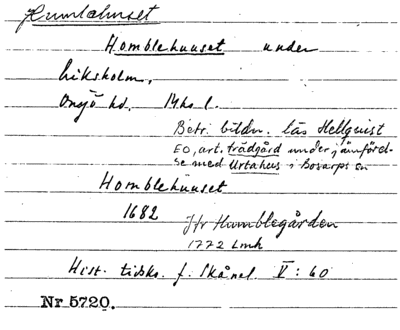 Humlahuset
Homblehuuset under
Eriksholm,
Onsjö hd. Mhs l.
Betr. bildn. läs Hellquist
EO, art. trädgård under jämförel-
se med Urtahus i Bosarps sn
Homblehuuset
1682
Jfr Humblegården
1772 Lmh
Hist. tidskr. f. Skånel. V : 60
Nr 5720.